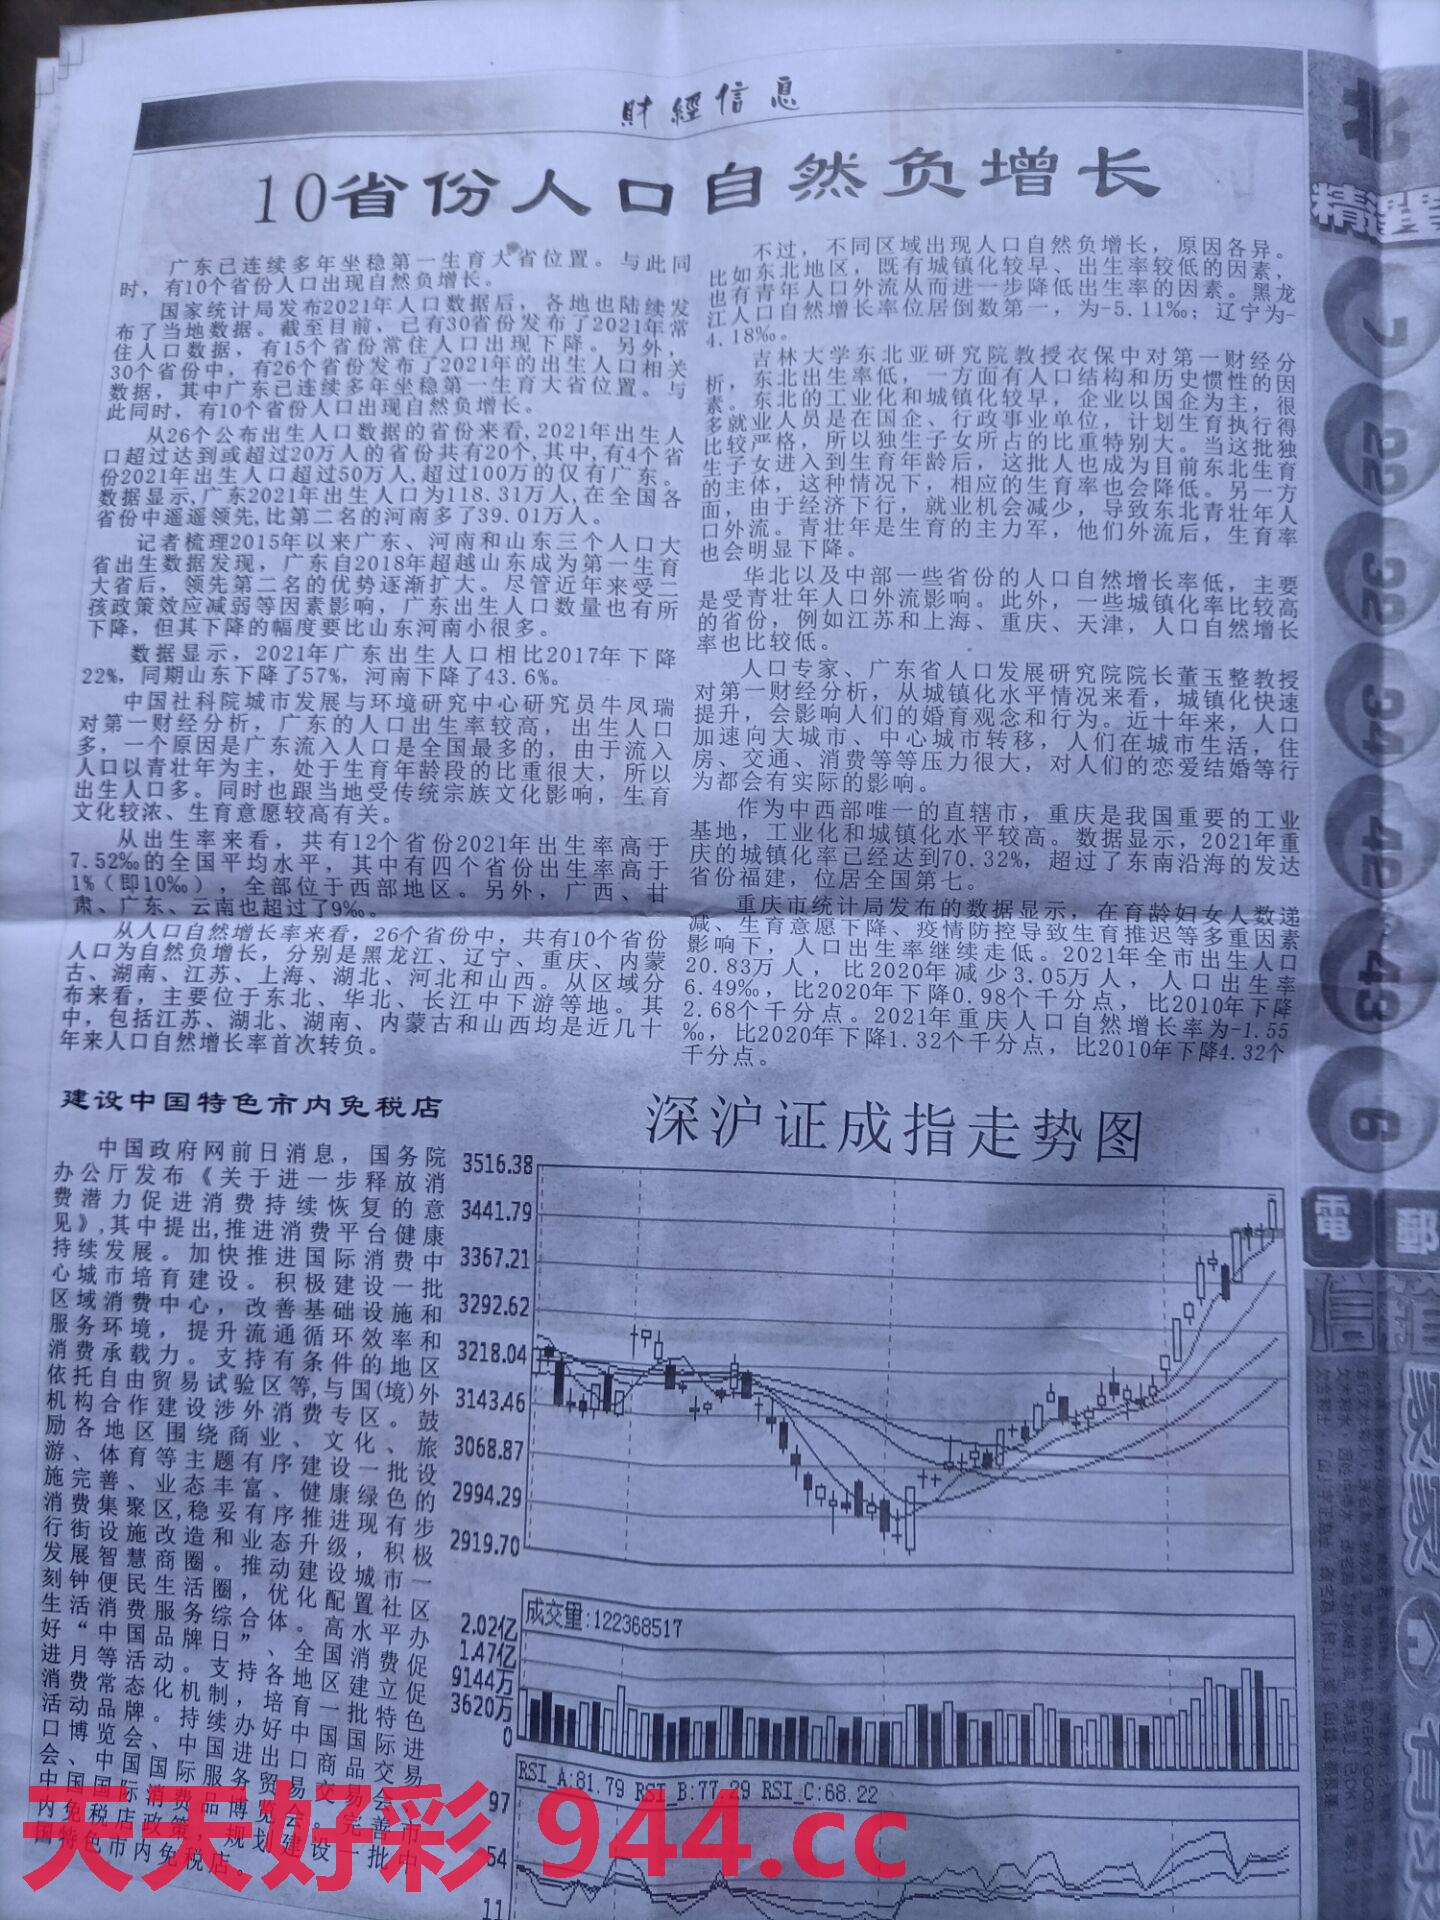 財經信息
10省份人口自然负增长
广东已连续多年坐稳第一生育大省位置。与此同
时，有10个省份人口出现自然负增长。
国家统计局发布2021年人口数据后，各地也陆续发
布了当地数据。截至目前，已有30省份发布了2021年常
住人口数据，有15个省份常住人口出现下降。另外，
30个省份中，有26个省份发布了2021年的出生人口相关
数据，其中广东已连续多年坐稳第一生育大省位置。与
此同时，有10个省份人口出现自然负增长。
从26个公布出生人口数据的省份来看,2021年出生人
口超过达到或超过20万人的省份共有20个,其中,有4个省
份2021年出生人口超过50万人,超过100万的仅有广东。
数据显示,广东2021年出生人口为118.31万人,在全国各
省份中遥遥领先,比第二名的河南多了39.01万人。
记者梳理2015年以来广东、河南和山东三个人口大
省出生数据发现，广东自2018年超越山东成为第一生育
大省后，领先第二名的优势逐渐扩大。尽管近年来受二
孩政策效应减弱等因素影响，广东出生人口数量也有所
下降，但其下降的幅度要比山东河南小很多。
数据显示，2021年广东出生人口相比2017年下降
22%，同期山东下降了57%，河南下降了43.6%。
中国社科院城市发展与环境研究中心研究员牛凤瑞
对第一财经分析，广东的人口出生率较高，出生人口
多，一个原因是广东流入人口是全国最多的，由于流入
人口以青壮年为主，处于生育年龄段的比重很大，所以
出生人口多。同时也跟当地受传统宗族文化影响，生育
文化较浓、生育意愿较高有关。
从出生率来看，共有12个省份2021年出生率高于
7.52‰的全国平均水平，其中有四个省份出生率高于
1%（即10‰），全部位于西部地区。另外，广西、甘
肃、广东、云南也超过了9‰。
从人口自然增长率来看，26个省份中，共有10个省份
人口为自然负增长，分别是黑龙江、辽宁、重庆、内蒙
古、湖南、江苏、上海、湖北、河北和山西。从区域分
布来看，主要位于东北、华北、长江中下游等地。其
中，包括江苏、湖北、湖南、内蒙古和山西均是近几十
年来人口自然增长率首次转负。
不过，不同区域出现人口自然负增长，原因各异。
比如东北地区，既有城镇化较早、出生率较低的因素，
也有青年人口外流从而进一步降低出生率的因素。黑龙
江人口自然增长率位居倒数第一，为-5.11‰；辽宁为-
4.18‰。
吉林大学东北亚研究院教授衣保中对第一财经分
析，东北出生率低，一方面有人口结构和历史惯性的因
素。东北的工业化和城镇化较早，企业以国企为主，很
多就业人员是在国企、行政事业单位，计划生育执行得
比较严格，所以独生子女所占的比重特别大。当这批独
生子女进入到生育年龄后，这批人也成为目前东北生育
的主体，这种情况下，相应的生育率也会降低。另一方
面，由于经济下行，就业机会减少，导致东北青壮年人
口外流。青壮年是生育的主力军，他们外流后，生育率
也会明显下降。
华北以及中部一些省份的人口自然增长率低，主要
是受青壮年人口外流影响。此外，一些城镇化率比较高
的省份，例如江苏和上海、重庆、天津，人口自然增长
率也比较低。
人口专家、广东省人口发展研究院院长董玉整教授
对第一财经分析，从城镇化水平情况来看，城镇化快速
提升，会影响人们的婚育观念和行为。近十年来，人口
加速向大城市、中心城市转移，人们在城市生活，住
房、交通、消费等等压力很大，对人们的恋爱结婚等行
为都会有实际的影响。
作为中西部唯一的直辖市，重庆是我国重要的工业
基地，工业化和城镇化水平较高。数据显示，2021年重
庆的城镇化率已经达到70.32%，超过了东南沿海的发达
省份福建，位居全国第七。
重庆市统计局发布的数据显示，在育龄妇女人数递
减、生育意愿下降、疫情防控导致生育推迟等多重因素
影响下，人口出生率继续走低。2021年全市出生人口
20.83万人，比2020年减少3.05万人，人口出生率
6.49‰，比2020年下降0.98个千分点，比2010年下降
2.68个千分点。2021年重庆人口自然增长率为-1.55
‰，比2020年下降1.32个千分点，比2010年下降4.32个
千分点。
建设中国特色市内免税店
中国政府网前日消息，国务院
办公厅发布《关于进一步释放消
费潜力促进消费持续恢复的意
见》,其中提出,推进消费平台健康
持续发展。加快推进国际消费中
心城市培育建设。积极建设一批
区域消费中心，改善基础设施和
服务环境，提升流通循环效率和
消费承载力。支持有条件的地区
依托自由贸易试验区等,与国(境)外
机构合作建设涉外消费专区。鼓
励各地区围绕商业、文化、旅
游、体育等主题有序建设一批设
施完善、业态丰富、健康绿色的
消费集聚区,稳妥有序推进现有步
行街设施改造和业态升级，积极
发展智慧商圈。推动建设城市一
刻钟便民生活圈，优化配置社区
生活消费服务综合体。高水平办
好“中国品牌日”、全国消费促
进月等活动。支持各地区建立促
消费常态化机制，培育一批特色
活动品牌。持续办好中国国际进
口博览会、中国进出口商品交易
会、中国国际服务贸易交易会、
中国国际消费品博览会。完善市
内免税店政策，规划建设一批中
国特色市内免税店。
深沪证成指走势图
3516.38
3441.79
3367.21
3292.62
3218.04
3143.46
3068.87
2994.29
2919.70
成交量:122368517
2.02亿
1.47亿
9144万
3620万
0
RSI_A:81.79 RSI_B:77.29 RSI_C:68.22
97
54
11
北
精選
7
22
32
34
42
43
6
電
郵
天天好彩 944.cc